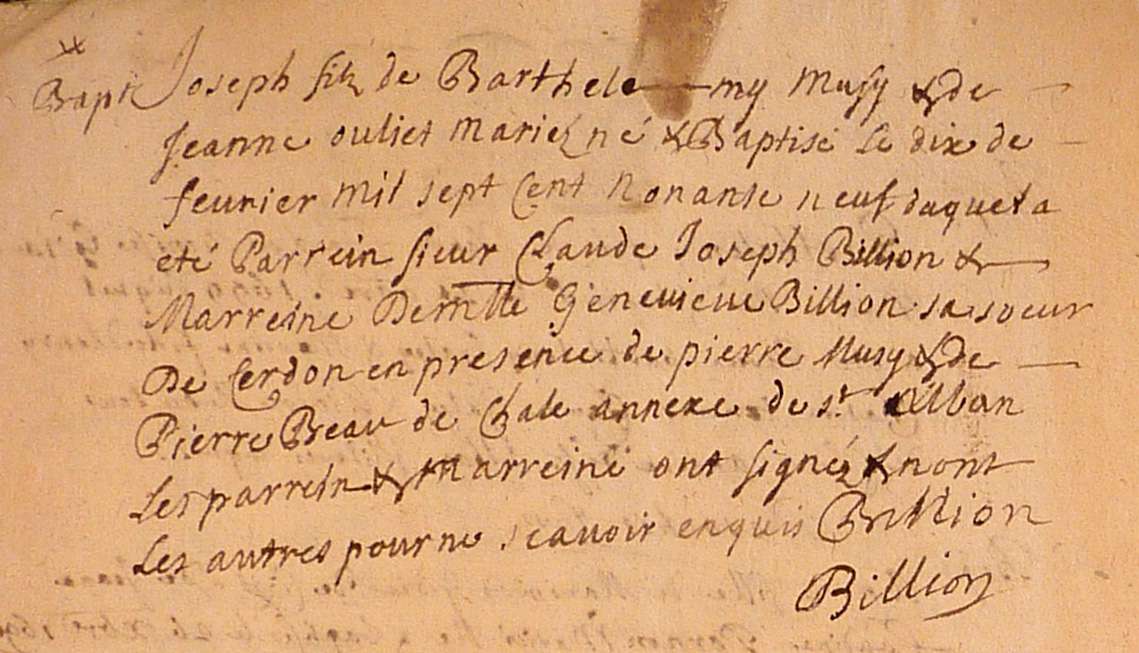 Bapt Joseph filz de Barthelemy Musy & de
Jeanne ouliet Mariez né & Baptisé Le dix de
feurier mil sept Cent Nonante neuf duquel a
eté Parrein sieur Claude Joseph Billion &
Marreine Demlle Geneuieue Billion sa soeur
De Cerdon en presence de pierre Musy & de
Pierre Beau de Chale annexe de st Alban
Les parrein & Marreine ont signéz & nont
Les autres pour ne scauoir enquis Billion
Billion